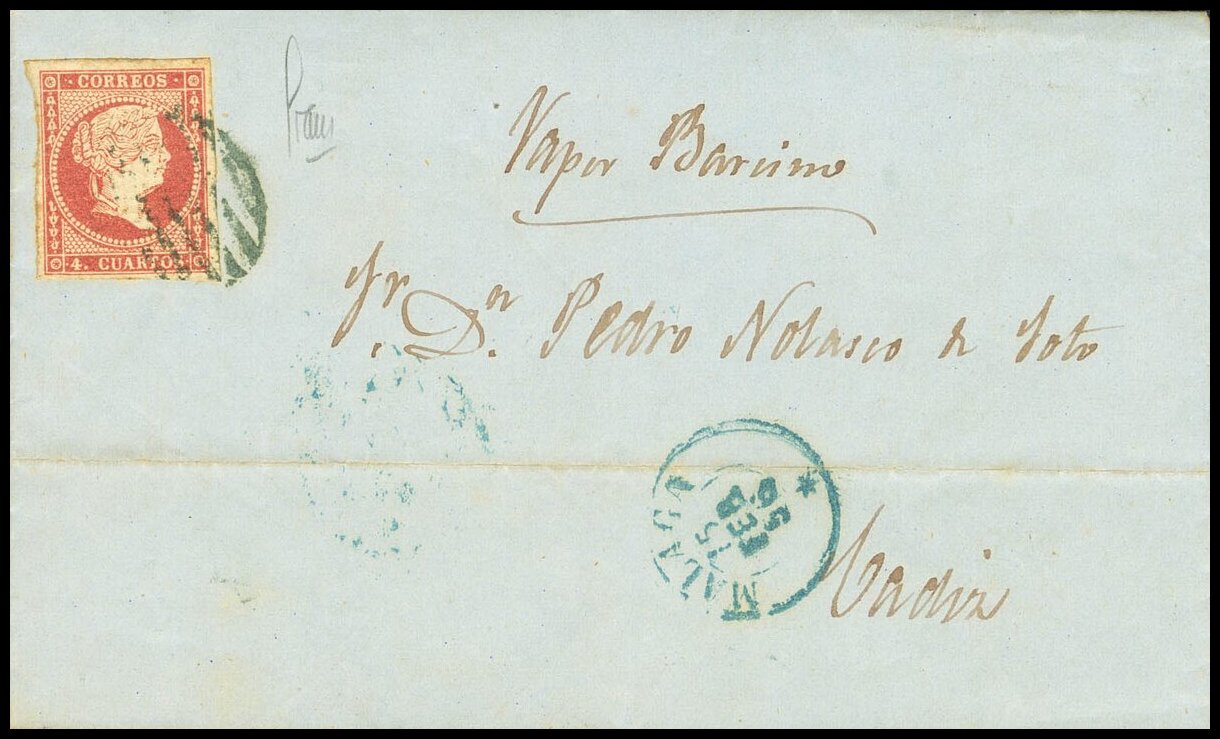 CORREOS
4. CUARTOS
Vapor Barcino
Sr. Dn. Pedro Nolasco de Soto
MALAGA
15
FEB
56
Cadiz